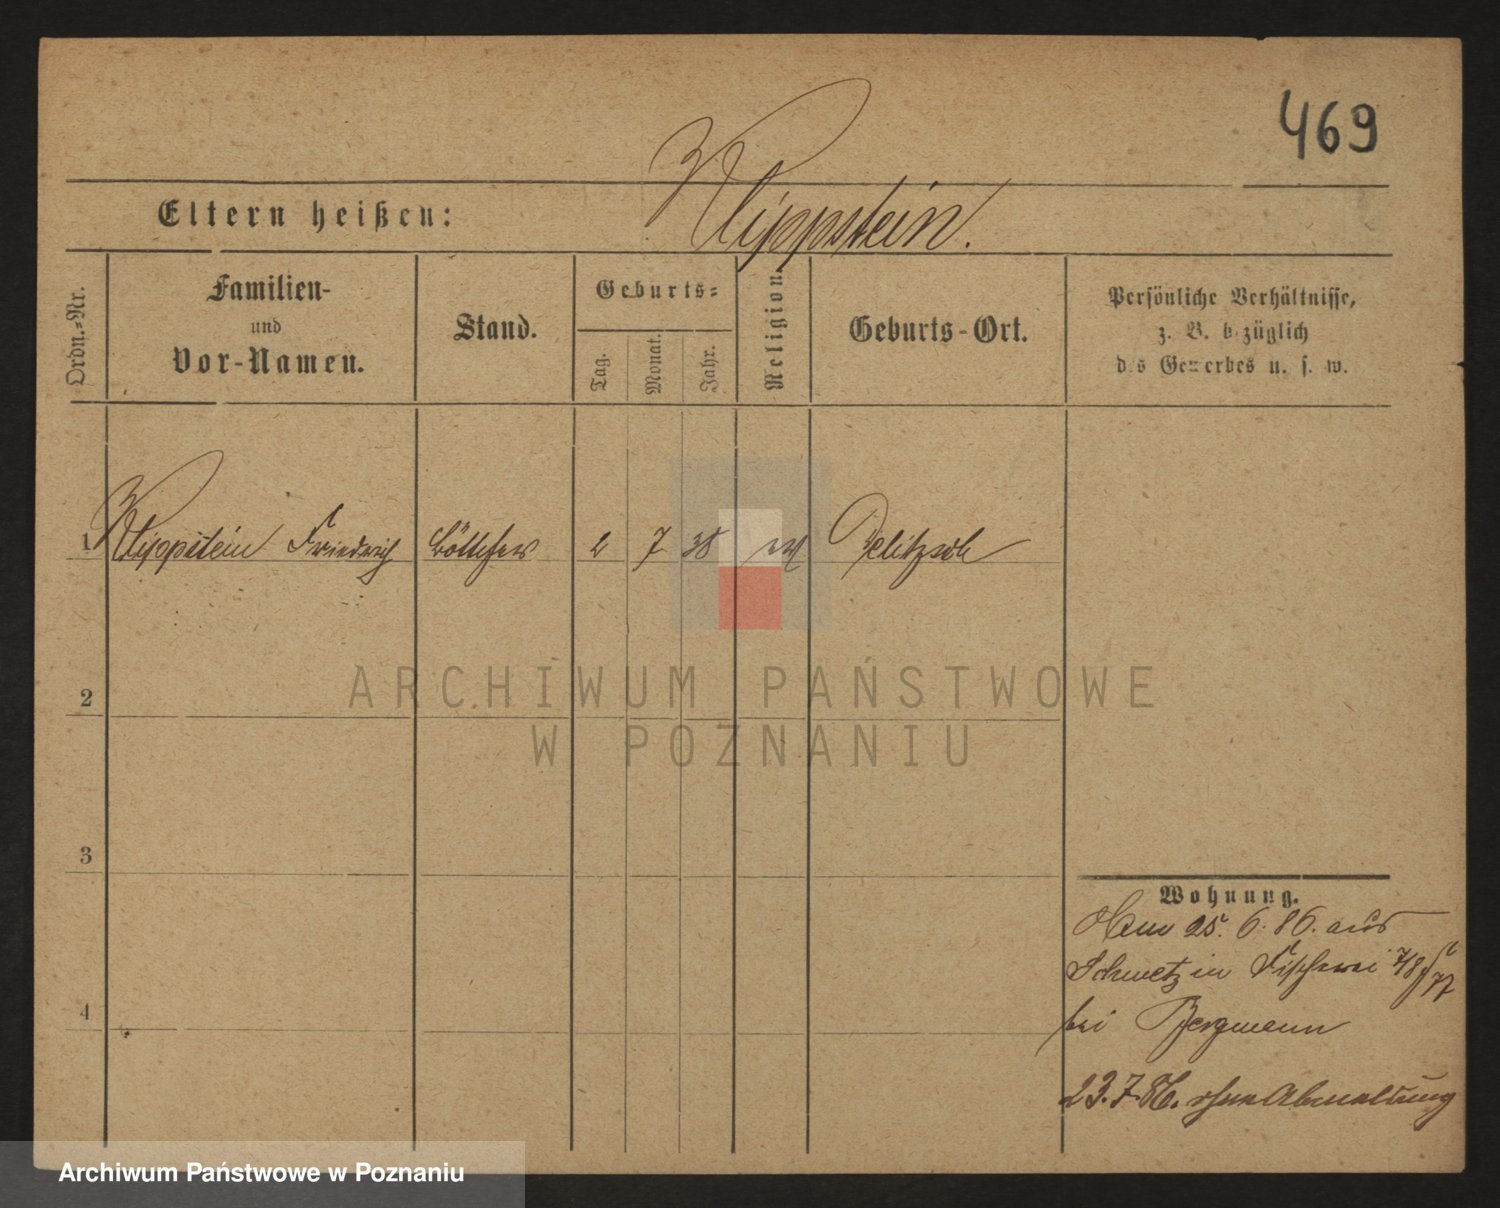 469
Eltern heißen: Klippstein.
Ordn.=Nr.
Familien-
und
Vor-Namen.
Stand.
Geburts=
Tag.
Monat.
Jahr.
Religion.
Geburts-Ort.
Persönliche Verhältnisse,
z. B. bezüglich
des Gewerbes u. s. w.
1 Klippstein Friedrich Böttcher 2 7 38 ev Delitzsch
2
3
4
Wohnung.
25. 6. 86. aus
Schwetz in Fischerei 7/8
bei Bergmann
23. 7. 86. ohne Abmeldung
ARCHIWUM PAŃSTWOWE
W POZNANIU
Archiwum Państwowe w Poznaniu